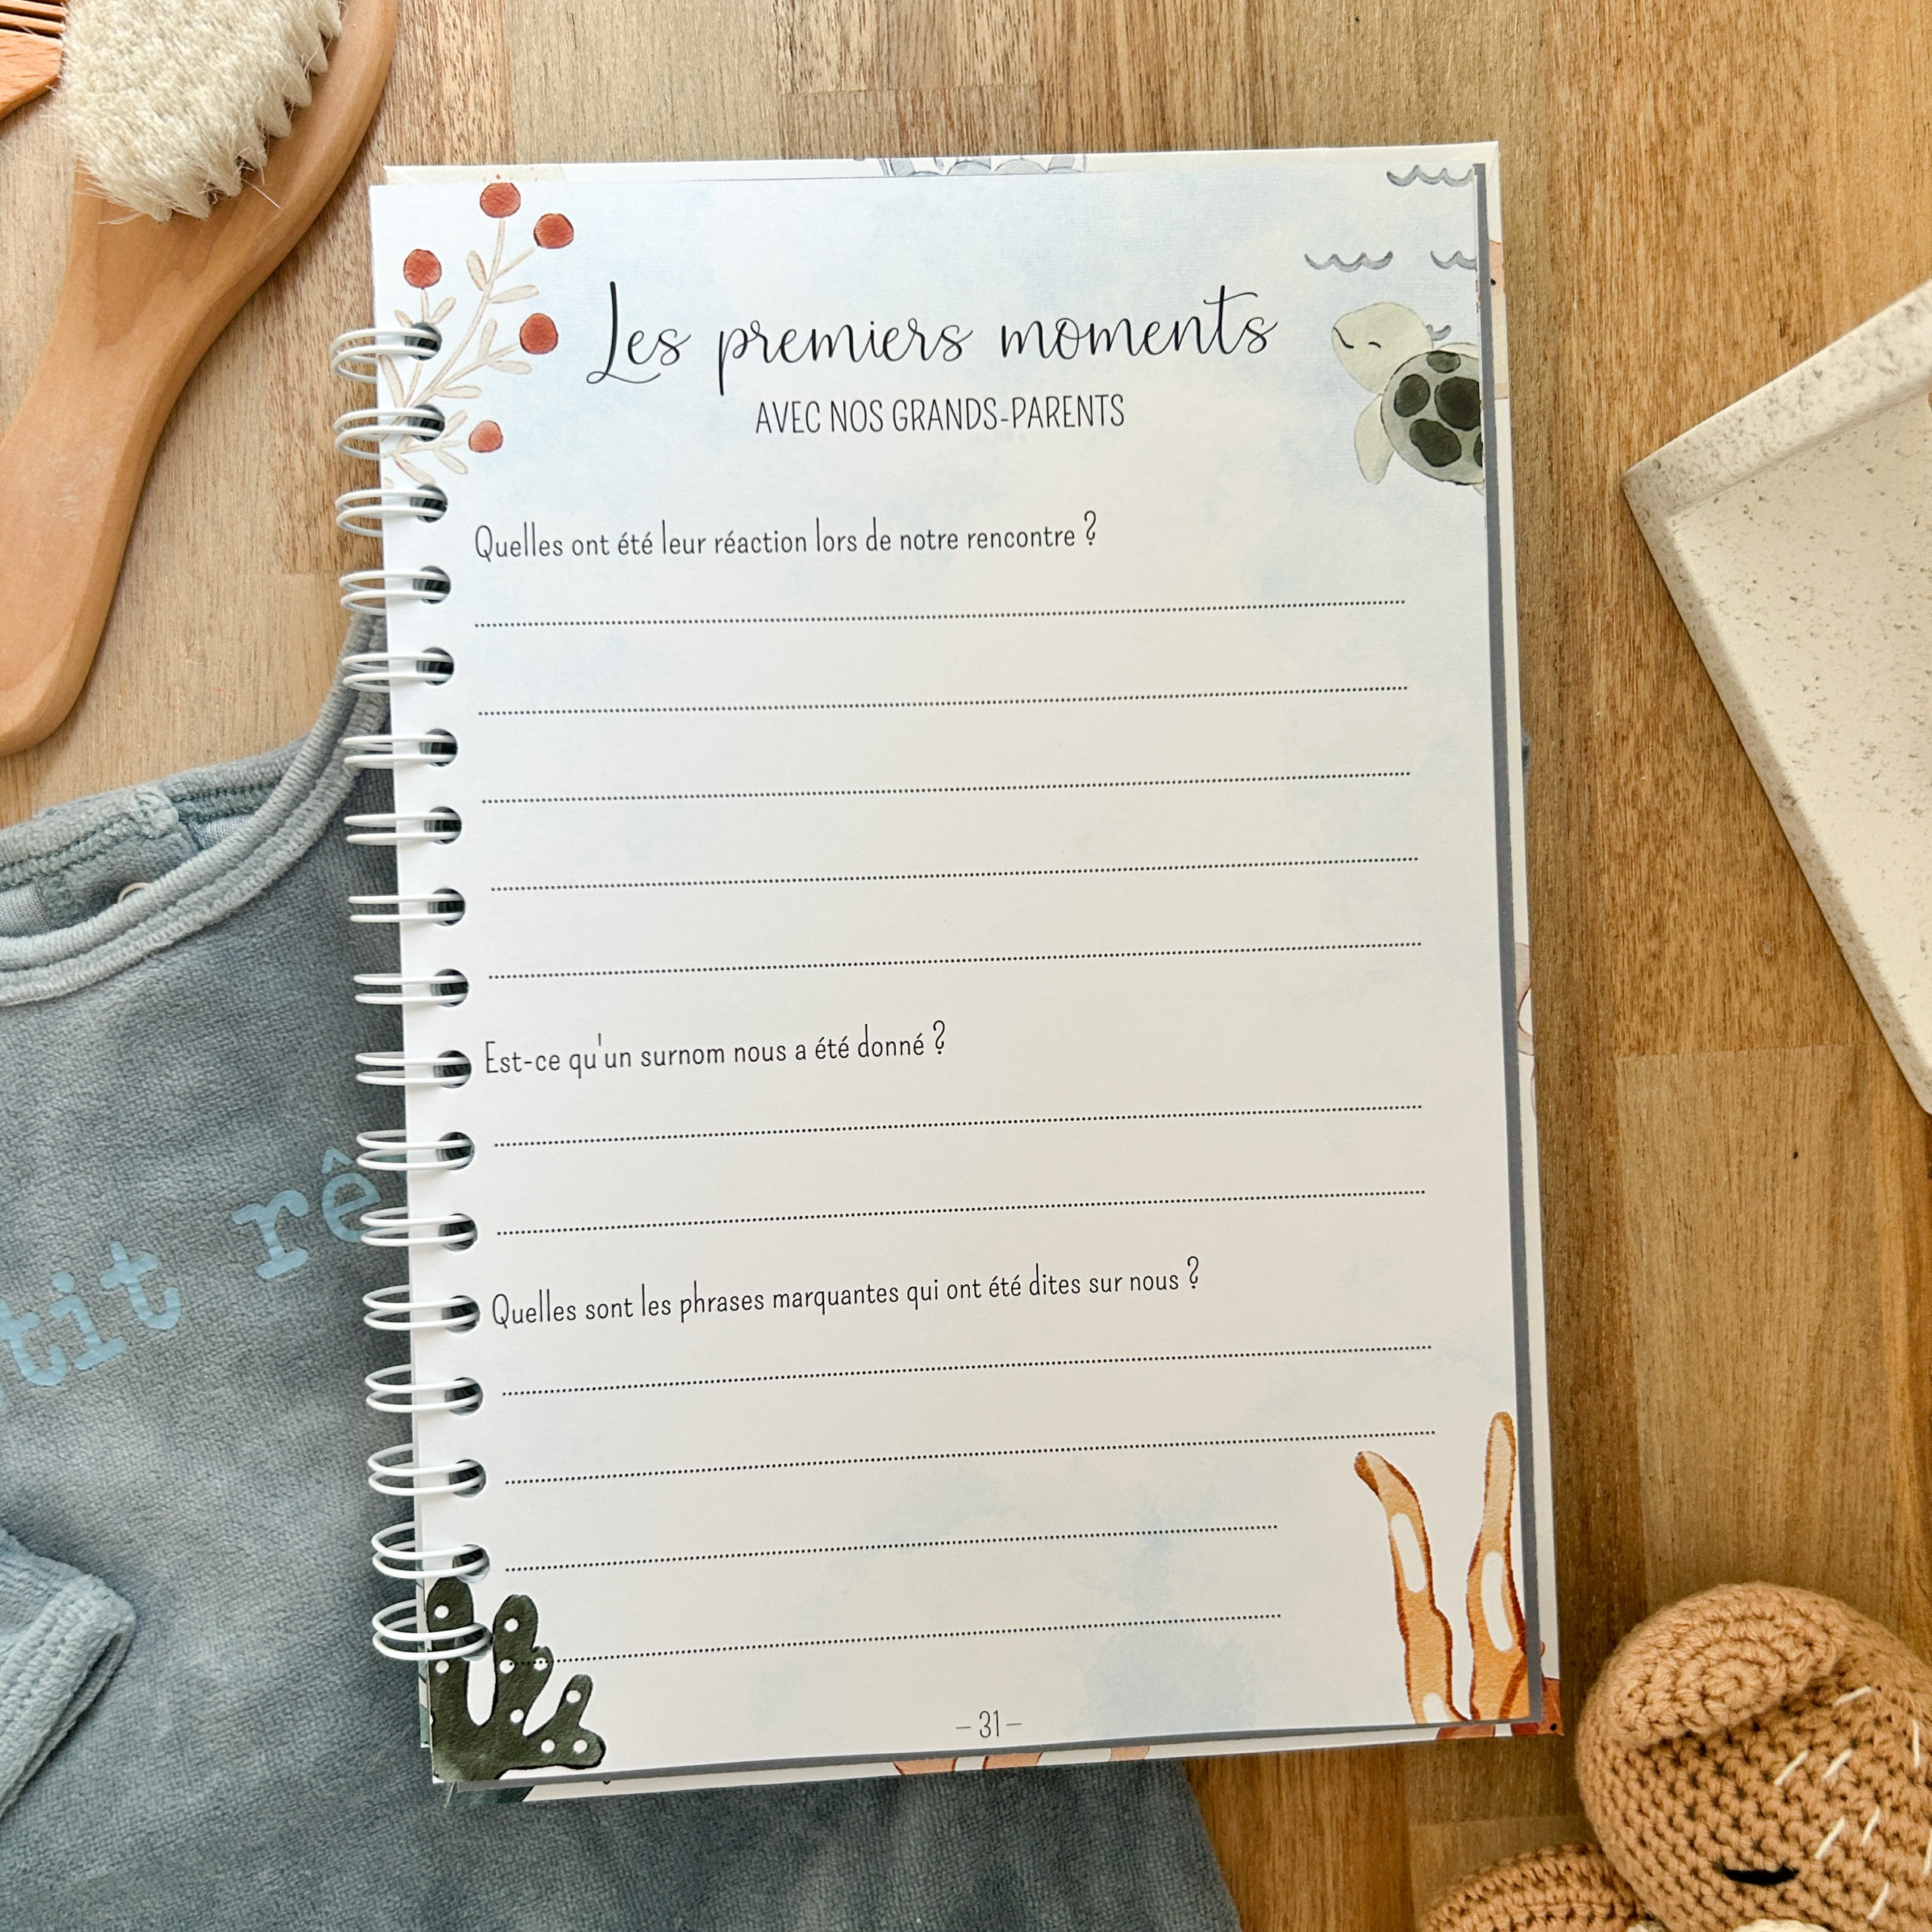 Les premiers moments
AVEC NOS GRANDS-PARENTS
Quelles ont été leur réaction lors de notre rencontre ?
Est-ce qu'un surnom nous a été donné ?
Quelles sont les phrases marquantes qui ont été dites sur nous ?
– 31 –
tit rê